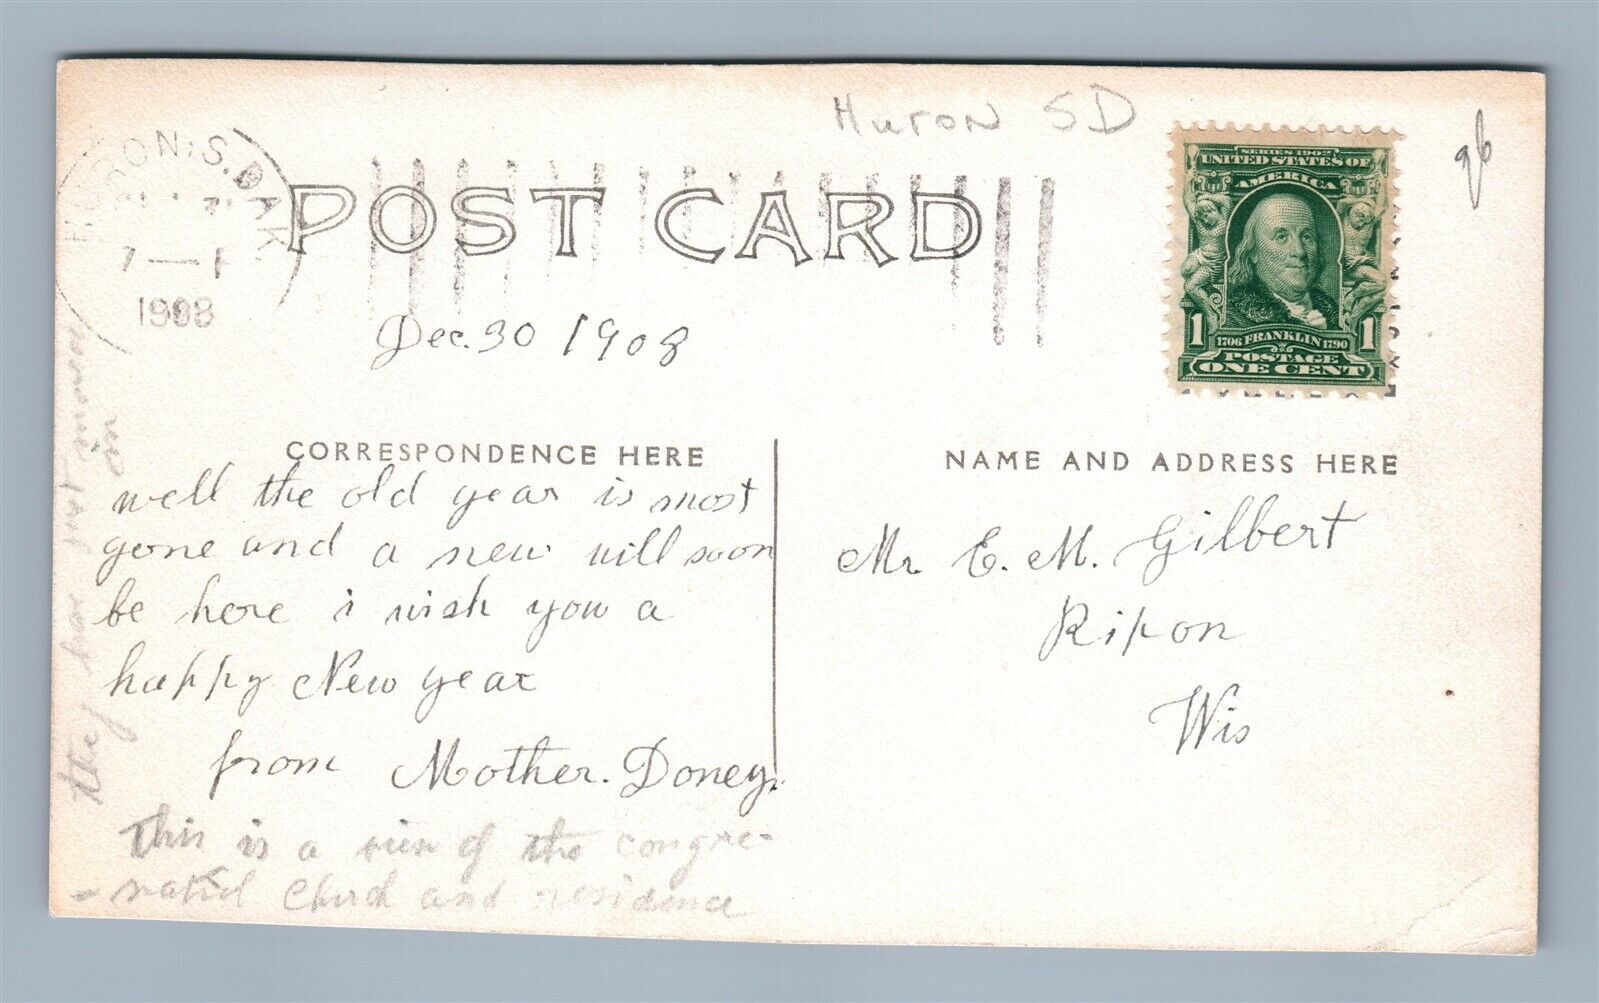 Huron SD
96
HURON, S. DAK.
1908
POST CARD
SERIES 1902
UNITED STATES OF
AMERICA
1 1
1706 FRANKLIN 1790
POSTAGE
ONE CENT
Dec. 30 1908
CORRESPONDENCE HERE
well the old year is most
gone and a new will soon
be here i wish you a
happy New year
from Mother. Doney.
This is a view of the congre-
-natiol Church and residence
they have just moved
in
NAME AND ADDRESS HERE
Mr E. M. Gilbert
Ripon
Wis